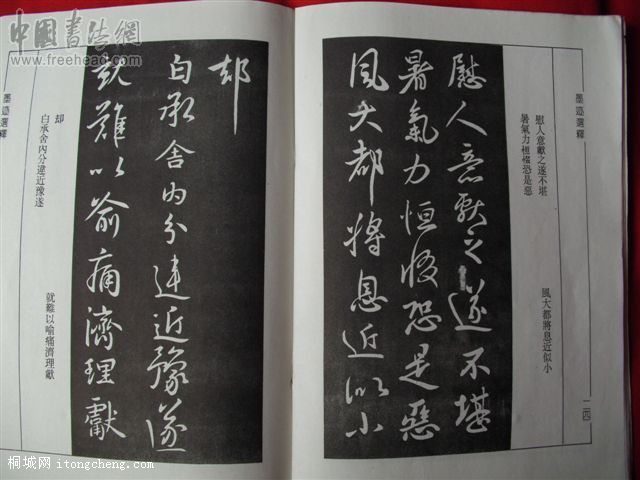 墨迹選釋
慰人意獻之遂不堪
暑氣力恒惙恐是惡
風大都將息近似小
二四
慰人意獻之遂不堪
暑氣力恒惙恐是惡
風大都將息近似小
却
白承舍內分違近豫遂
就難以俞痛濟理獻
却
白承舍內分違近豫遂
就難以喻痛濟理獻
墨迹選釋
中國書法網
www.freehead.com
桐城网 itongcheng.com